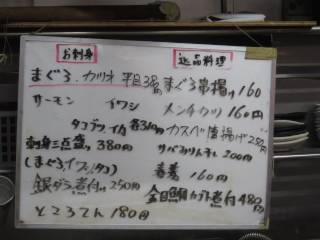 お刺身
逸品料理
まぐろ、カツオ 平目3點
まぐろ串揚げ160
サーモン イワシ
メンチカツ 160円
タコブツ、イカ 各310円
カスベ唐揚げ250円
刺身三点盛り 380円
サバみりん干し200円
(まぐろ、イワシ、タコ)
春巻 160円
銀ダラ煮付け250円
金目鯛カブト煮付480円
ところてん 180円